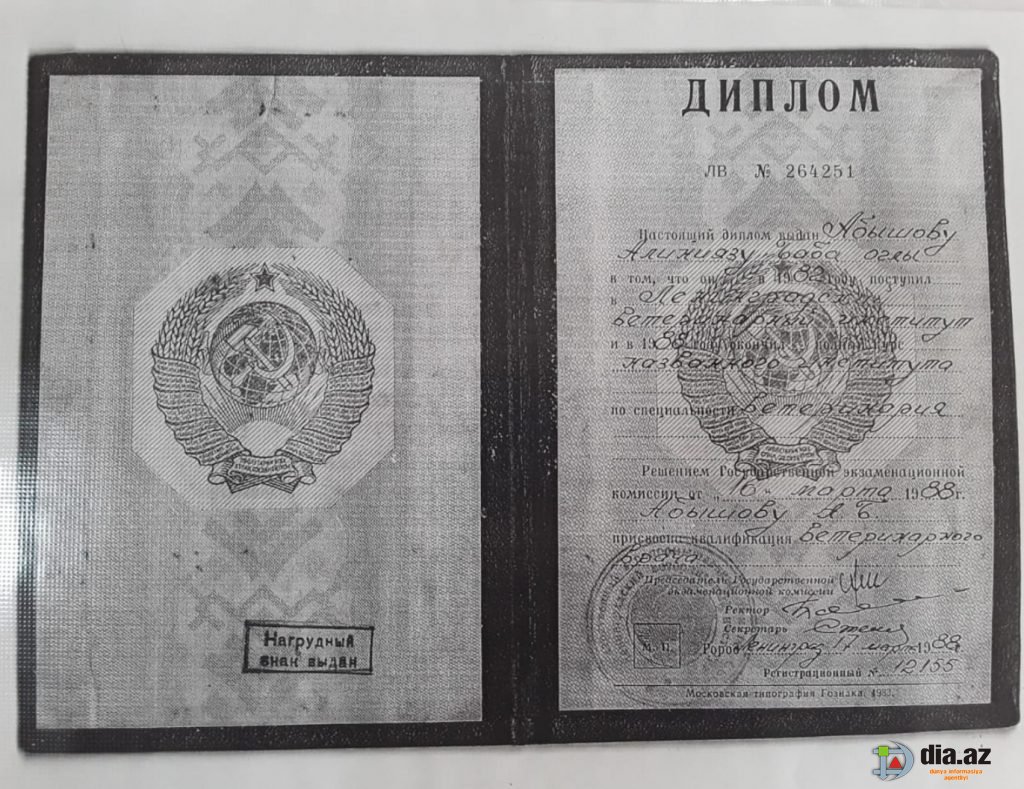 Нагрудный
знак выдан
ДИПЛОМ
ЛВ № 264251
Настоящий диплом выдан Абышову
Алиниязу Баба оглы
в том, что он в 1982 году поступил
в Ленинградский
ветеринарный институт
и в 1988 году окончил полный курс
названного института
по специальности ветеринария
Решением Государственной экзаменационной
комиссии от „16“ марта 1988 г.
Абышову А. Б.
присвоена квалификация ветеринарного
врача
Председатель Государственной
экзаменационной комиссии
Ректор
Секретарь
М. П. Город Ленинград 17 март 1988 г.
Регистрационный № 12155
Московская типография Гознака. 1983.
dia.az
dunya informasiya
agentliyi